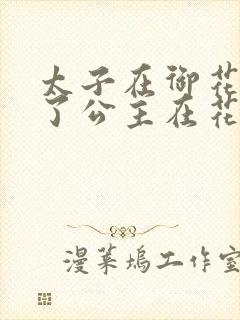 太子在御花
了公主在花
漫菓坞工作室